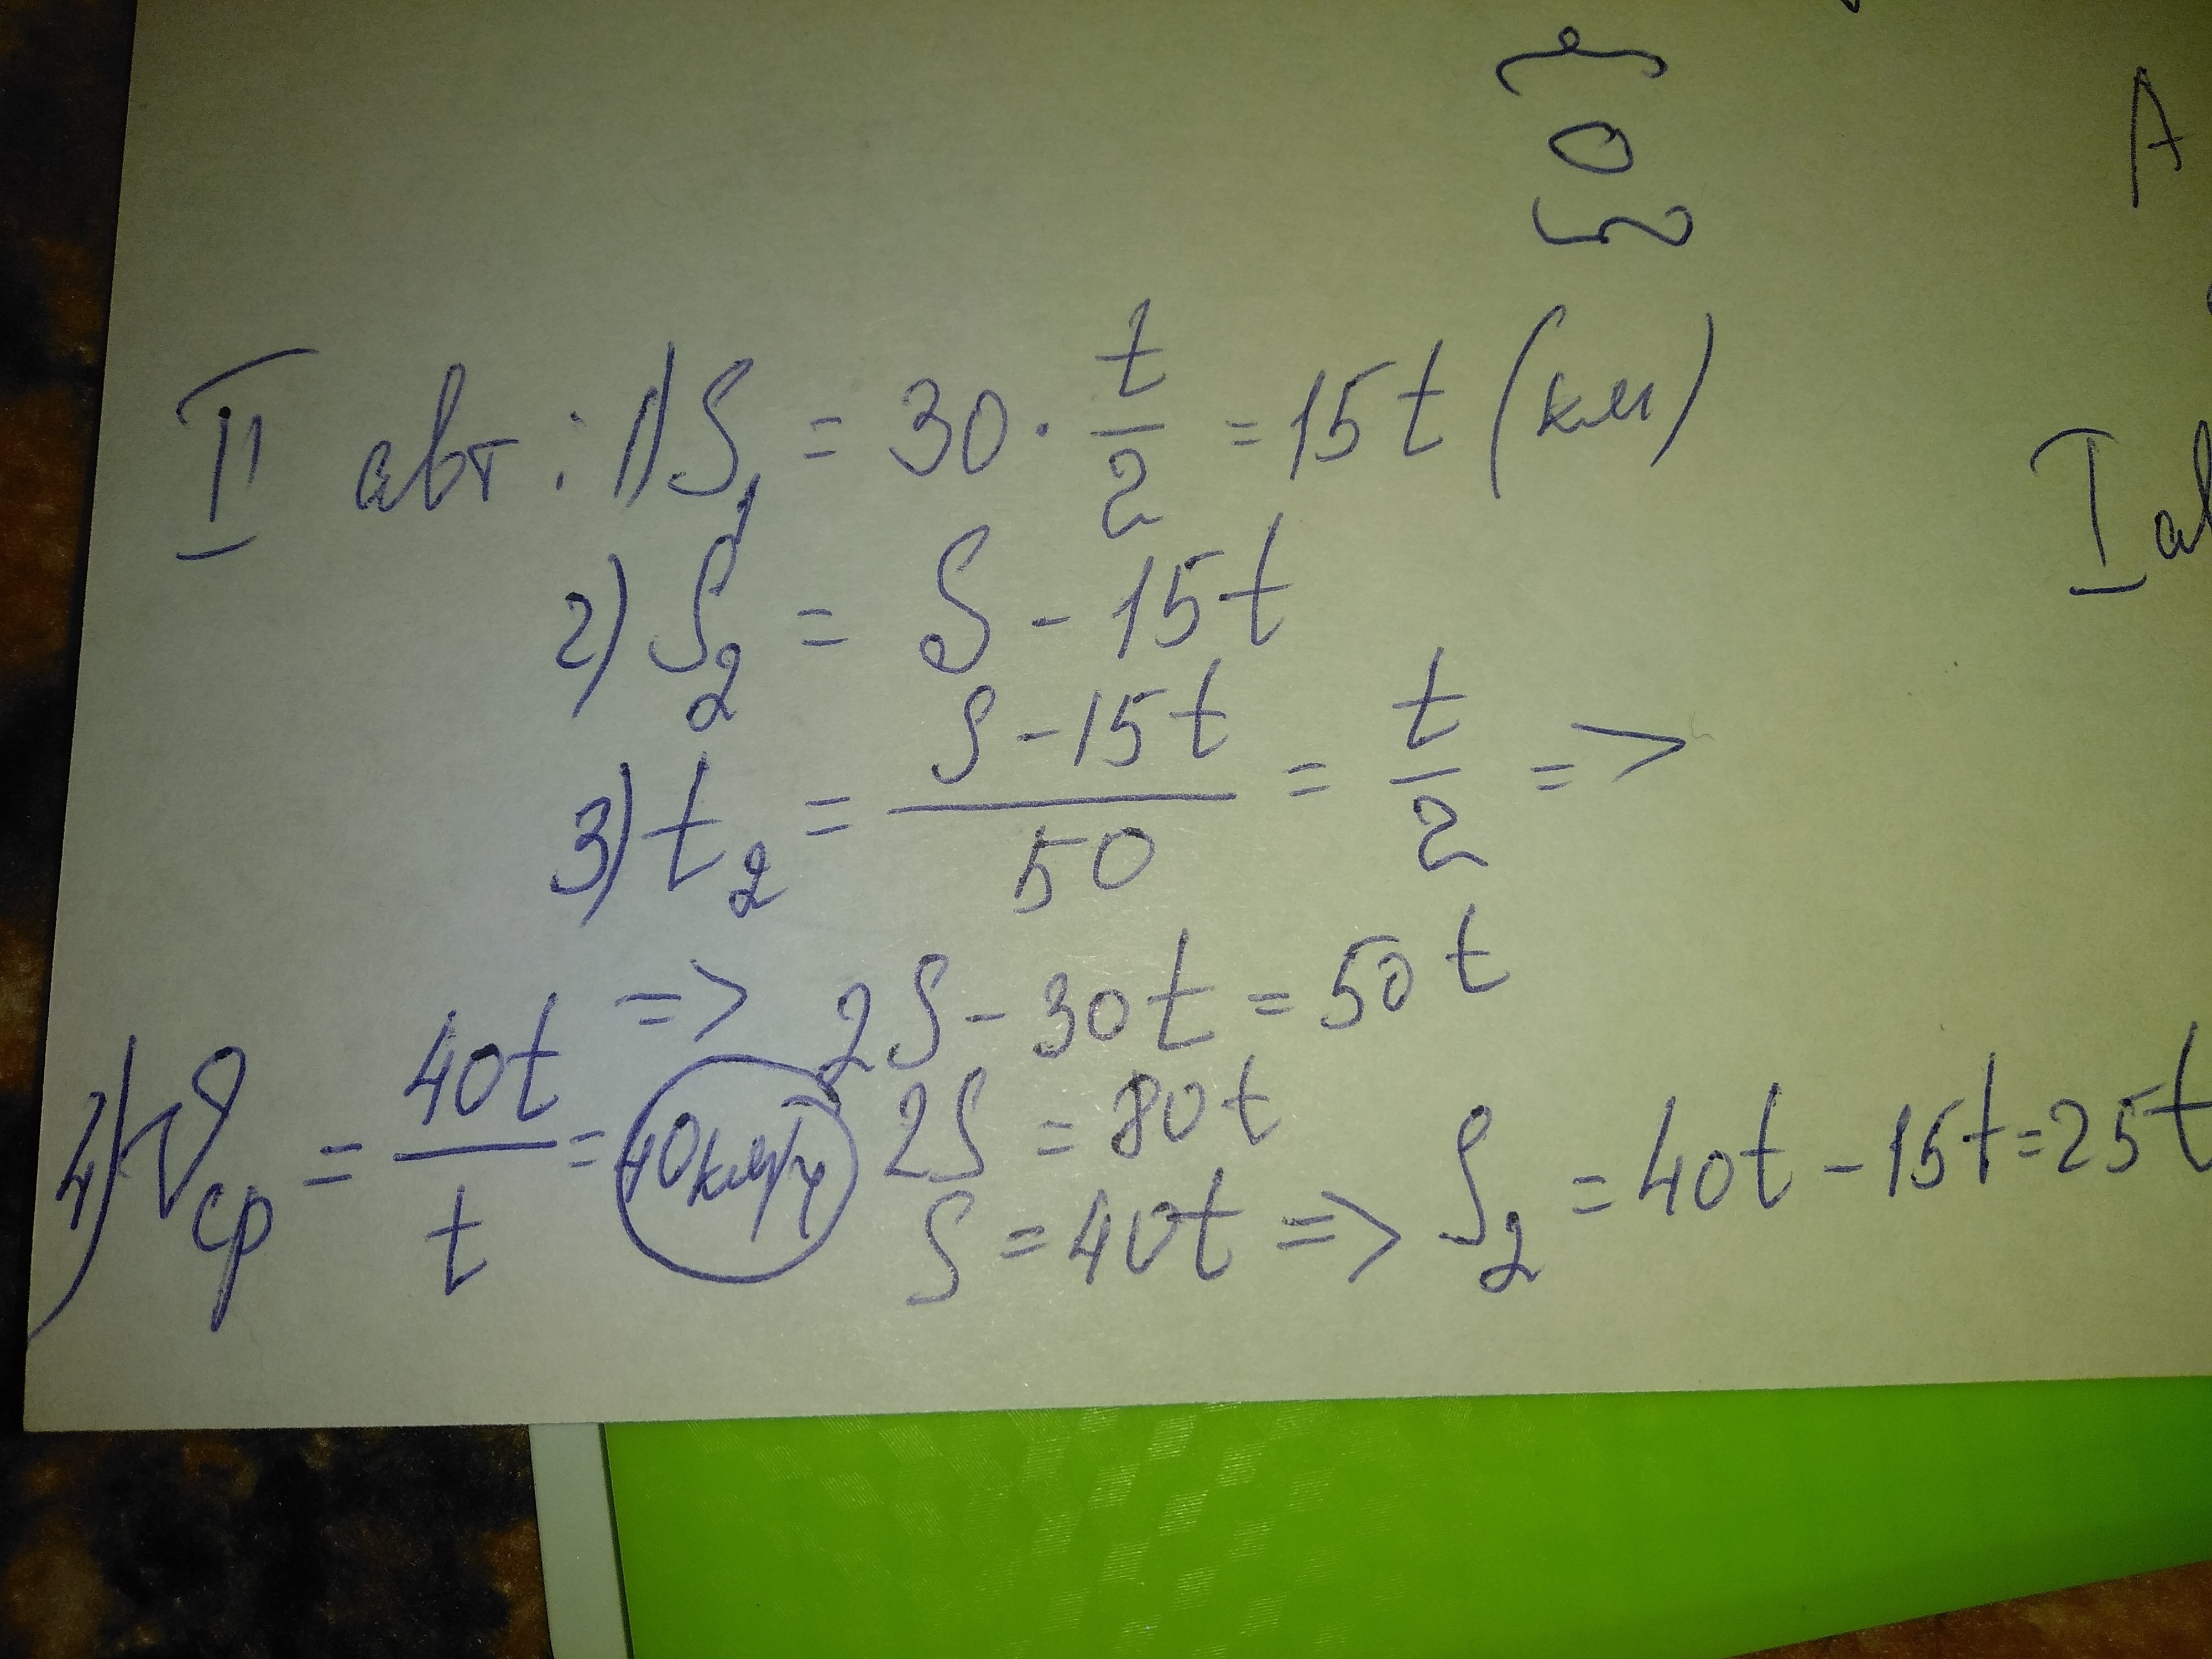 A
II авт: 1) S₁ = 30 · t/2 = 15t (км)
I ав
2) S₂ = S - 15t
3) t₂ = (S - 15t)/50 = t/2 =>
=> 2S - 30t = 50t
2S = 80t
S = 40t => S₂ = 40t - 15t = 25t
4) V ср = 40t/t = 40км/ч